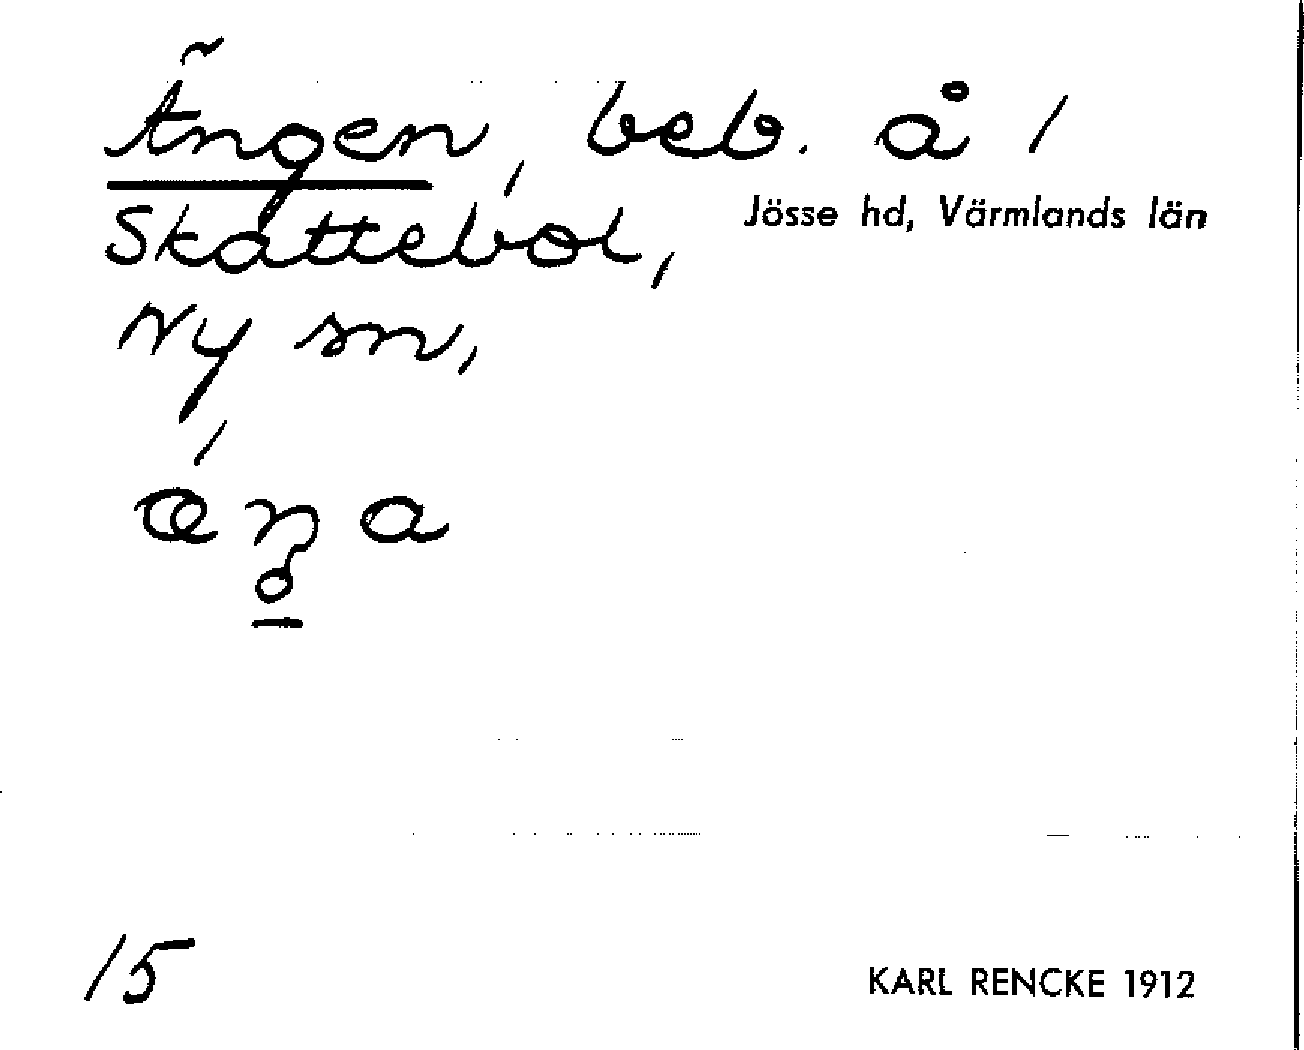 Ängen, beb. å 1
Skattebol,
Jösse hd, Värmlands län
Ny sn,
15
KARL RENCKE 1912